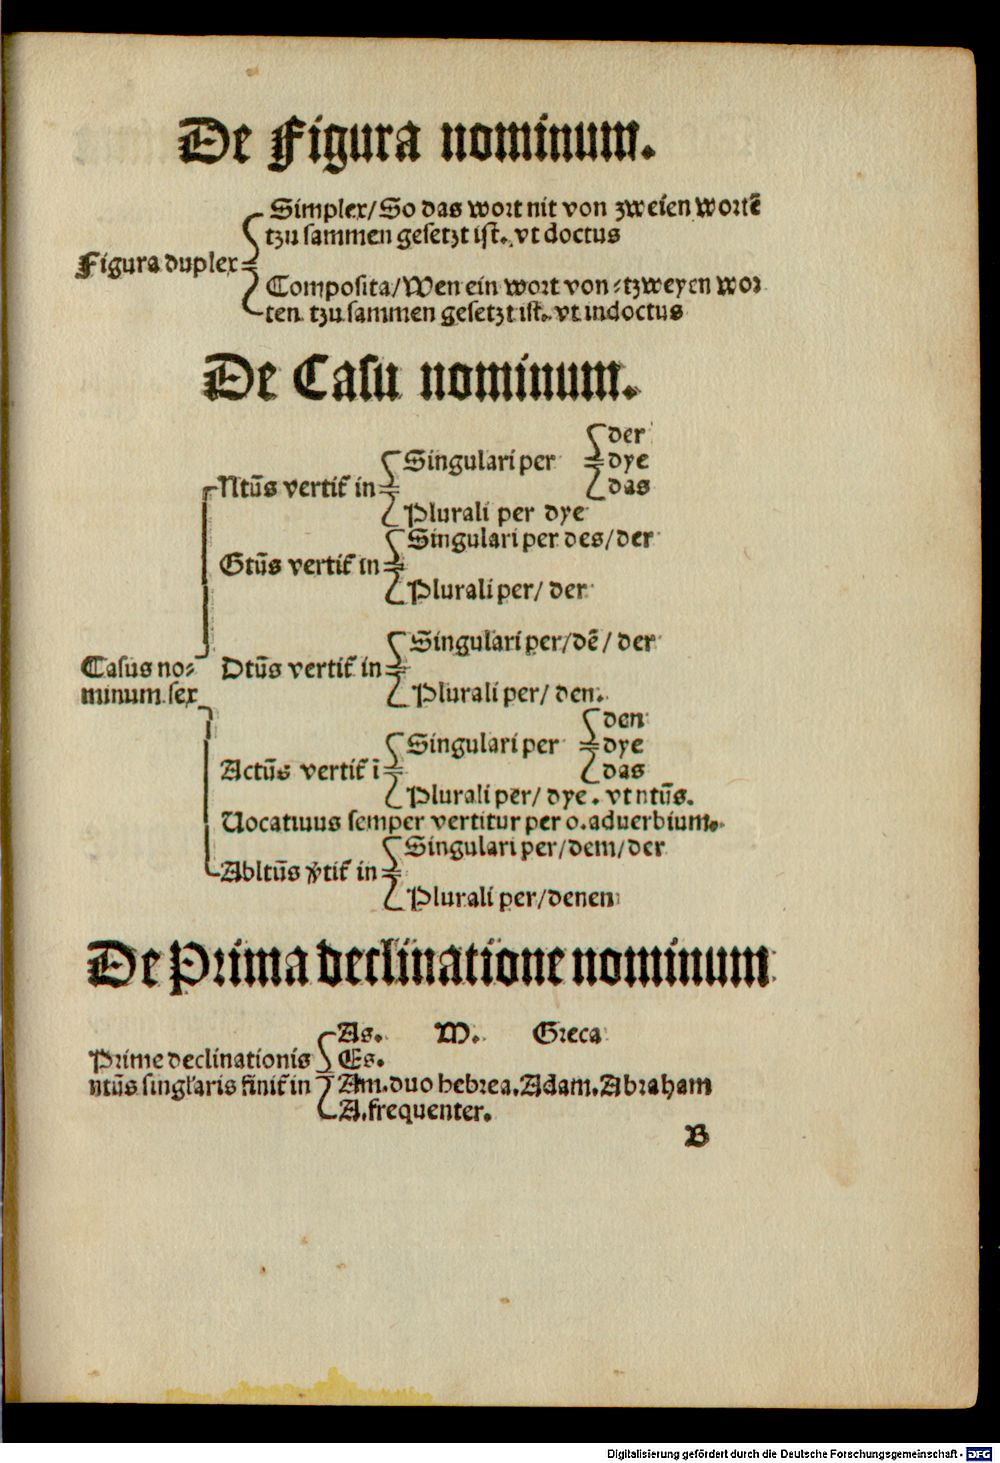 De Figura nominum.
Simplex/So das wort nit von zweien wortē
tzu sammen gesetzt ist. vt doctus
Figura duplex
Composita/Wen ein wort von⸗tzweyen wor
ten tzu sammen gesetzt ist. vt indoctus
De Casu nominum.
der
Singulari per dye
Ntūs vertit᷑ in das
Plurali per dye
Singulari per des/der
Gtūs vertit᷑ in
Plurali per/ der
Singulari per/dē/ der
Casus no⸗ Dtūs vertit᷑ in
minum sex Plurali per/ den.
den
Singulari per dye
Actūs vertit᷑ ī das
Plurali per/ dye. vt ntūs.
Uocatiuus semper vertitur per o. aduerbium.
Singulari per/dem/der
Abltūs v̄tit᷑ in
Plurali per/denen
De Prima declinatione nominum
As. M. Greca
Prime declinationis Es.
ntūs singl'aris finit᷑ in Am. duo hebrea. Adam. Abraham
A. frequenter.
B
Digitalisierung gefördert durch die Deutsche Forschungsgemeinschaft - DFG